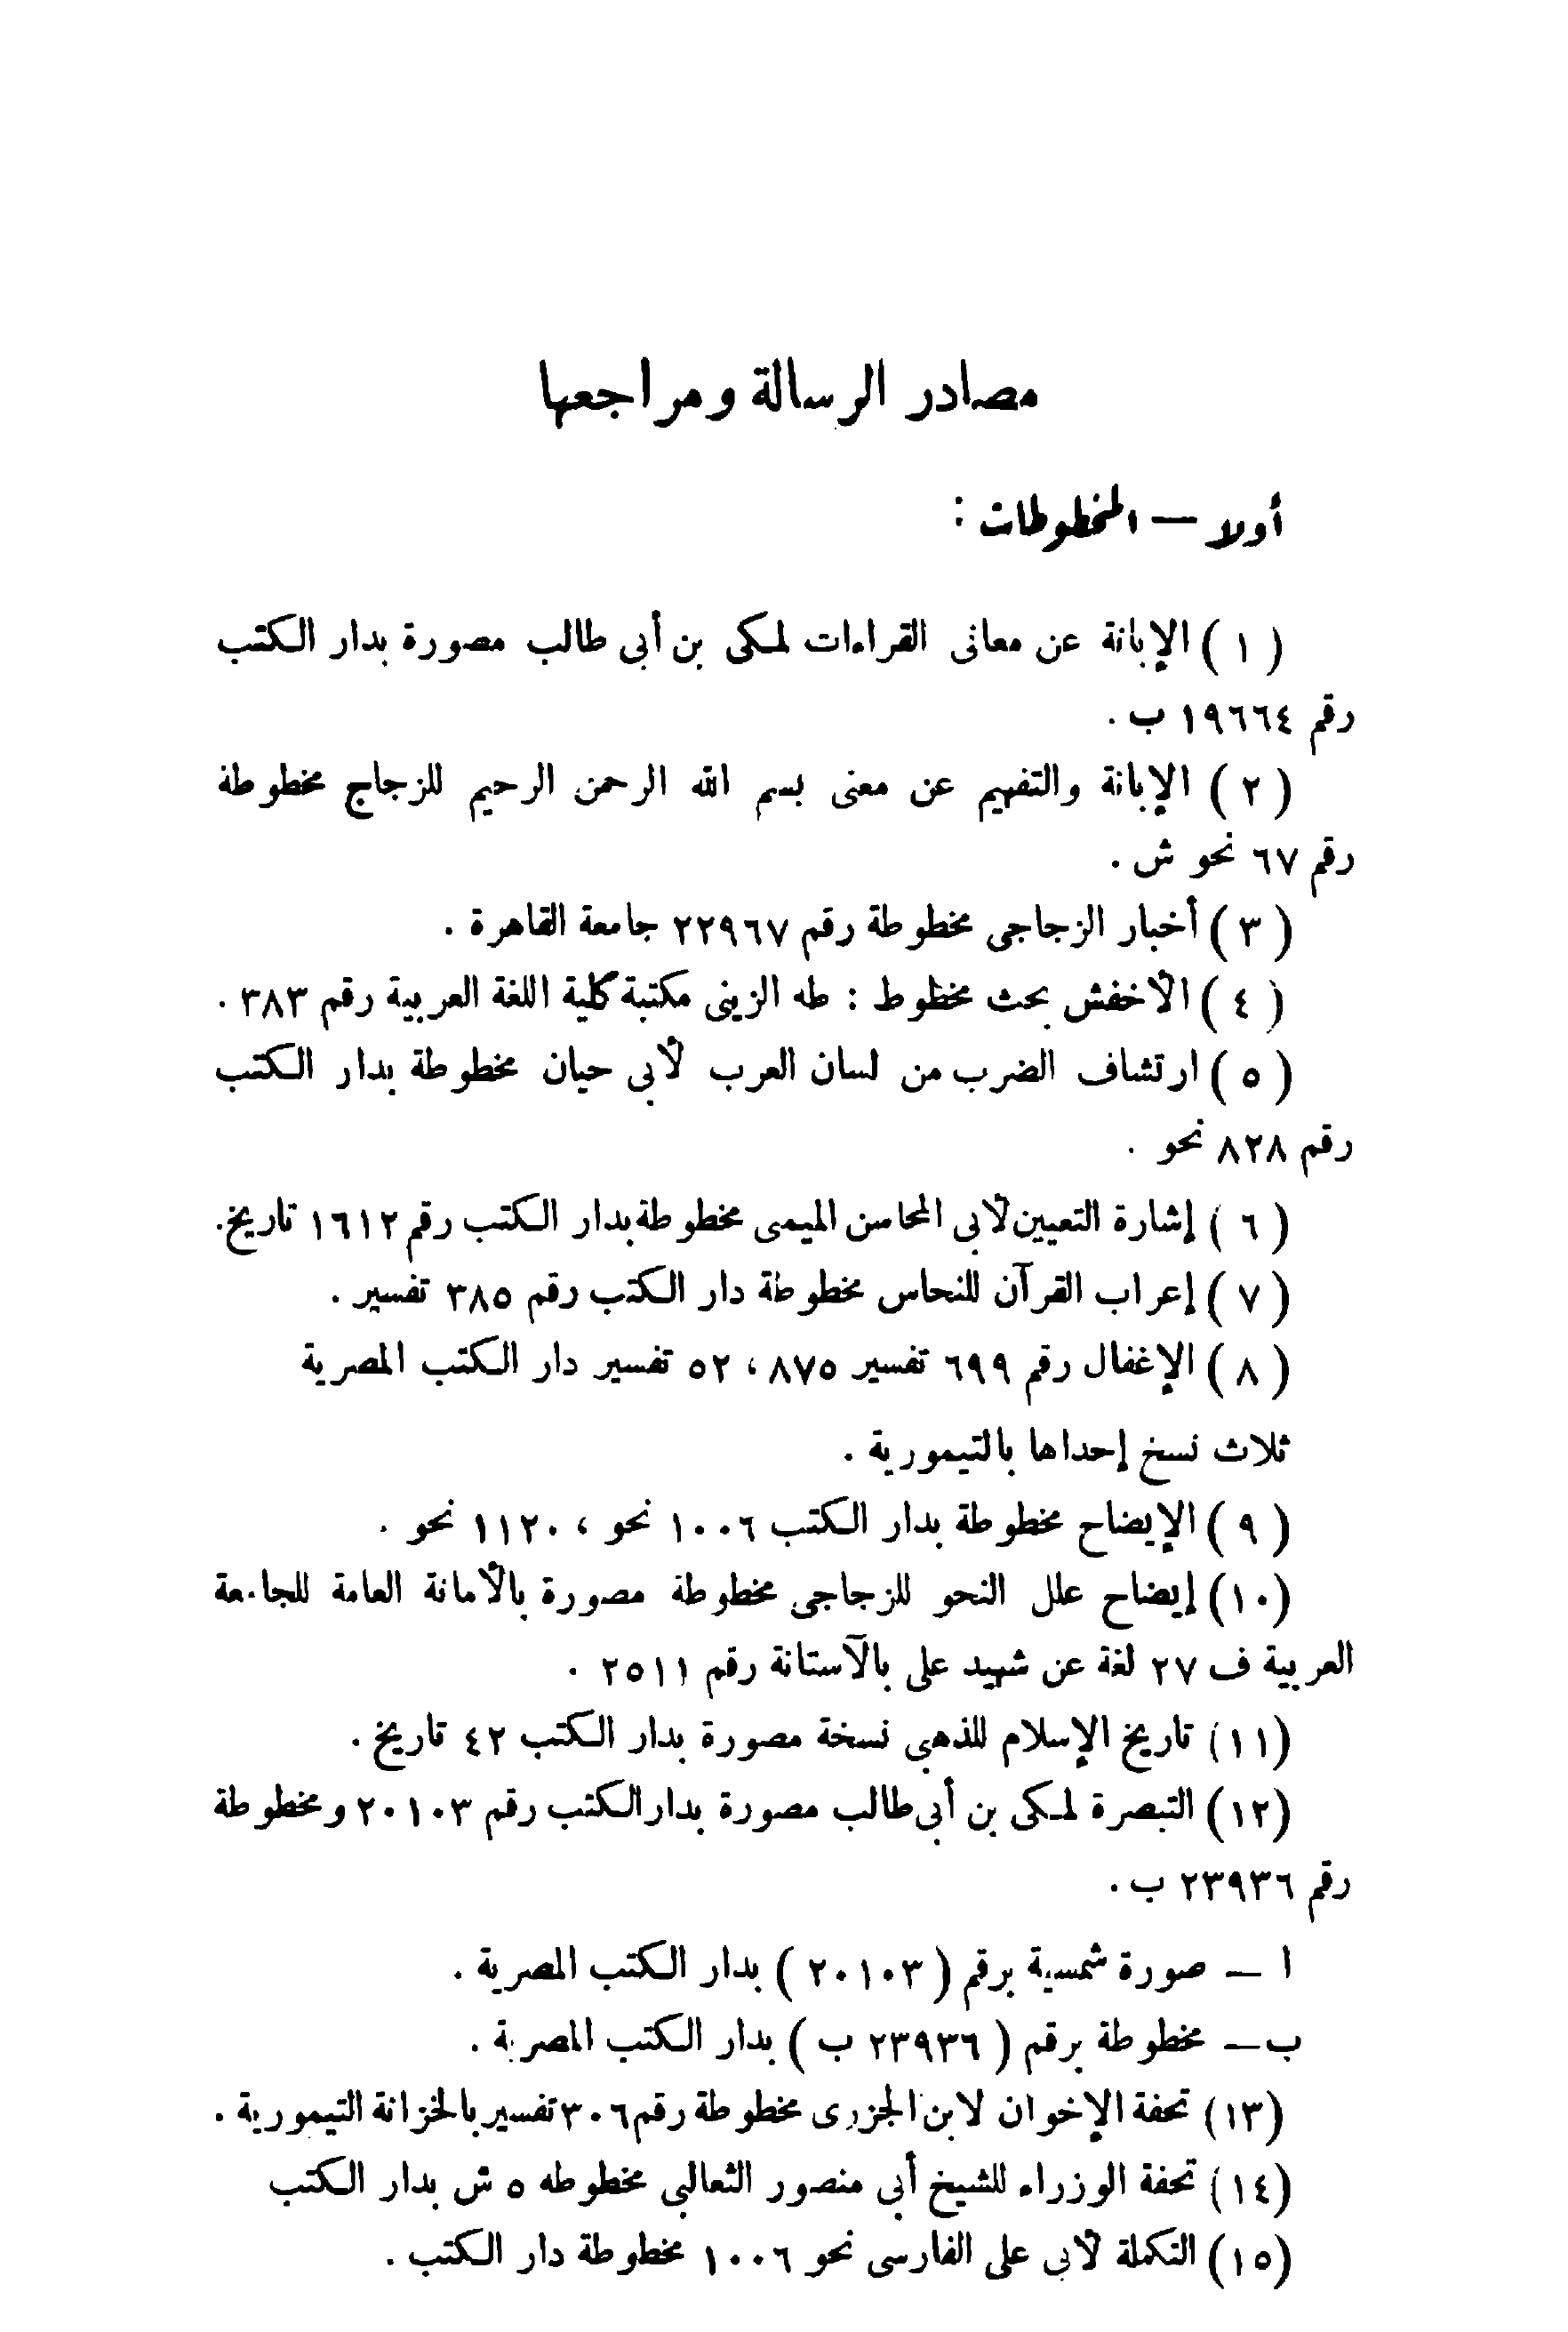 مصادر الرسالة ومراجعها
أولا — المخطوطات :
( ١ ) الإبانة عن معانى القراءات لمكى بن أبى طالب مصورة بدار الكتب
رقم ١٩٦٦٤ ب .
( ٢ ) الإبانة والتفهيم عن معنى بسم الله الرحمن الرحيم للزجاج مخطوطة
رقم ٦٧ نحو ش .
( ٣ ) أخبار الزجاجى مخطوطة رقم ٢٢٩٦٧ جامعة القاهرة .
( ٤ ) الأخفش بحث مخطوط : طه الزينى مكتبة كلية اللغة العربية رقم ٣٨٣ .
( ٥ ) ارتشاف الضرب من لسان العرب لأبى حيان مخطوطة بدار الكتب
رقم ٨٢٨ نحو .
( ٦ ) إشارة التعيين لأبى المحاسن الميمى مخطوطة بدار الكتب رقم ١٦١٢ تاريخ .
( ٧ ) إعراب القرآن للنحاس مخطوطة دار الكتب رقم ٣٨٥ تفسير .
( ٨ ) الإغفال رقم ٦٩٩ تفسير ٨٧٥ ، ٥٢ تفسير دار الكتب المصرية
ثلاث نسخ إحداها بالتيمورية .
( ٩ ) الإيضاح مخطوطة بدار الكتب ١٠٠٦ نحو ، ١١٢٠ نحو .
(١٠) إيضاح علل النحو للزجاجى مخطوطة مصورة بالأمانة العامة للجامعة
العربية ف ٢٧ لغة عن شهيد على بالآستانة رقم ٢٥١١ .
(١١) تاريخ الإسلام للذهبى نسخة مصورة بدار الكتب ٤٢ تاريخ .
(١٢) التبصرة لمكى بن أبى طالب مصورة بدار الكتب رقم ٢٠١٠٣ ومخطوطة
رقم ٢٣٩٣٦ ب .
ا — صورة شمسية برقم ( ٢٠١٠٣ ) بدار الكتب المصرية .
ب — مخطوطة برقم ( ٢٣٩٣٦ ب ) بدار الكتب المصرية .
(١٣) تحفة الإخوان لابن الجزرى مخطوطة رقم ٣٠٦ تفسير بالخزانة التيمورية .
(١٤) تحفة الوزراء للشيخ أبى منصور الثعالبى مخطوطه ٥ ش بدار الكتب
(١٥) التكملة لأبى على الفارسى نحو ١٠٠٦ مخطوطة دار الكتب .